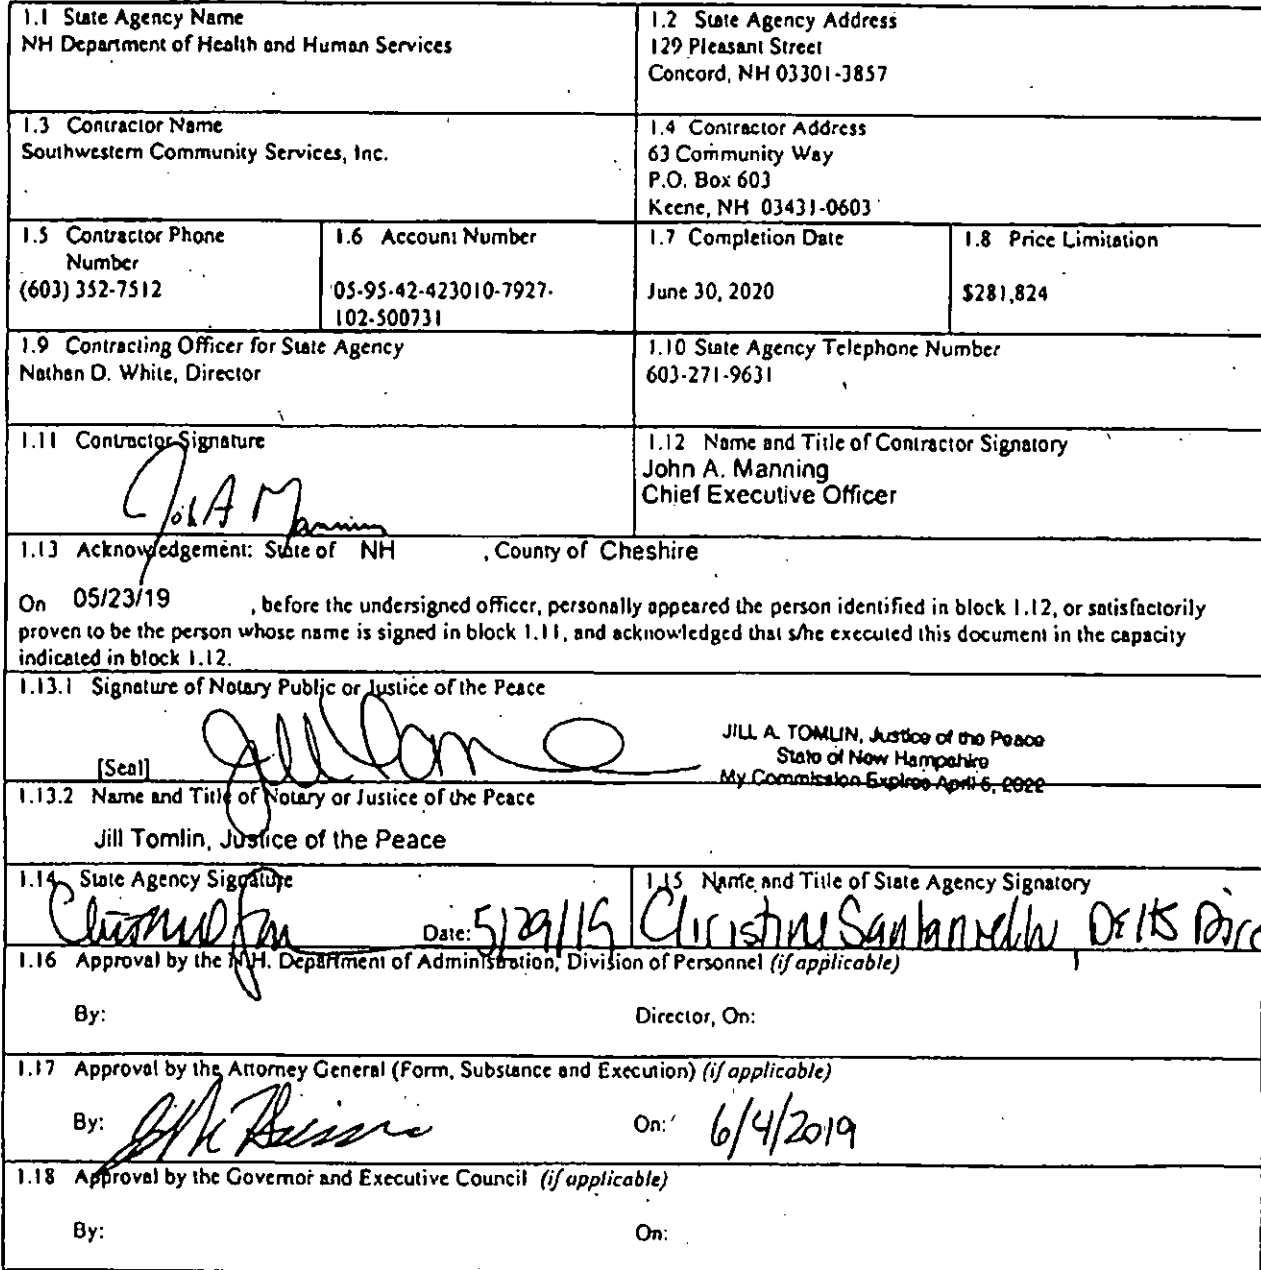 1.1 State Agency Name
NH Department of Health and Human Services
1.2 State Agency Address
129 Pleasant Street
Concord, NH 03301-3857
1.3 Contractor Name
Southwestern Community Services, Inc.
1.4 Contractor Address
63 Community Way
P.O. Box 603
Keene, NH 03431-0603
1.5 Contractor Phone
Number
(603) 352-7512
1.6 Account Number
05-95-42-423010-7927-
102-500731
1.7 Completion Date
June 30, 2020
1.8 Price Limitation
$281,824
1.9 Contracting Officer for State Agency
Nathan D. White, Director
1.10 State Agency Telephone Number
603-271-9631
1.11 Contractor Signature
John A Manning
1.12 Name and Title of Contractor Signatory
John A. Manning
Chief Executive Officer
1.13 Acknowledgement: State of NH , County of Cheshire
On 05/23/19 , before the undersigned officer, personally appeared the person identified in block 1.12, or satisfactorily
proven to be the person whose name is signed in block 1.11, and acknowledged that s/he executed this document in the capacity
indicated in block 1.12.
1.13.1 Signature of Notary Public or Justice of the Peace
[Seal]
JILL A. TOMLIN, Justice of the Peace
State of New Hampshire
My Commission Expires April 6, 2022
1.13.2 Name and Title of Notary or Justice of the Peace
Jill Tomlin, Justice of the Peace
1.14 State Agency Signature
Date: 5/29/19
1.15 Name and Title of State Agency Signatory
Christine Santaniello
1.16 Approval by the N.H. Department of Administration, Division of Personnel (if applicable)
By: Director, On:
1.17 Approval by the Attorney General (Form, Substance and Execution) (if applicable)
By: On: 6/4/2019
1.18 Approval by the Governor and Executive Council (if applicable)
By: On: